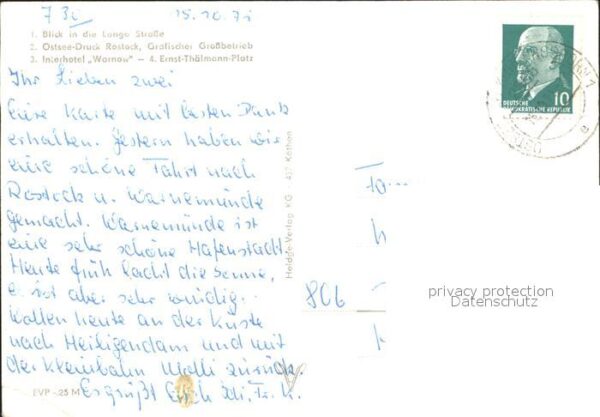 7 30 15.10.71
1. Blick in die Lange Straße
2. Ostsee-Druck Rostock, Grafischer Großbetrieb
3. Interhotel „Warnow" – 4. Ernst-Thälmann-Platz
Ihr Lieben zwei
Eure Karte mit besten Dank
erhalten. Gestern haben wir
eine schöne Fahrt nach
Rostock u. Warnemünde
gemacht. Warnemünde ist
eine sehr schöne Hafenstadt
Heute früh lacht die Sonne,
es ist aber sehr windig.
Wollen heute an der Küste
nach Heiligendam und mit
der Kleinbahn Molli zurück.
Es grüßt Euch
EVP -25 M
Heldge-Verlag KG · 437 Köthen
10
DEUTSCHE
DEMOKRATISCHE REPUBLIK
Fa...
h
806
privacy protection
Datenschutz